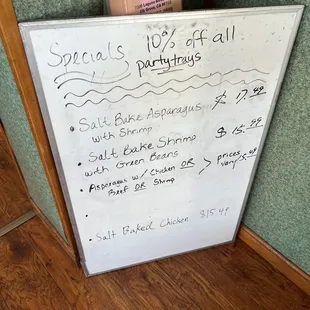 Specials 10% off all
partytrays
• Salt Bake Asparagus $ 17.49
with Shrimp
• Salt Bake Shrimp $ 15.99
with Green Beans
• Asparagus w/ Chicken OR > prices
Beef OR Shrimp vary
• Salt Baked Chicken $15.49